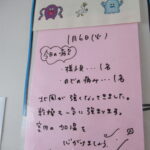 1月6日(火)
今日の病気
様子見…1名
のどの痛み…1名
北風が強くなってきました。
乾燥も一気に強まります。
室内の加湿を
心がけましょう。